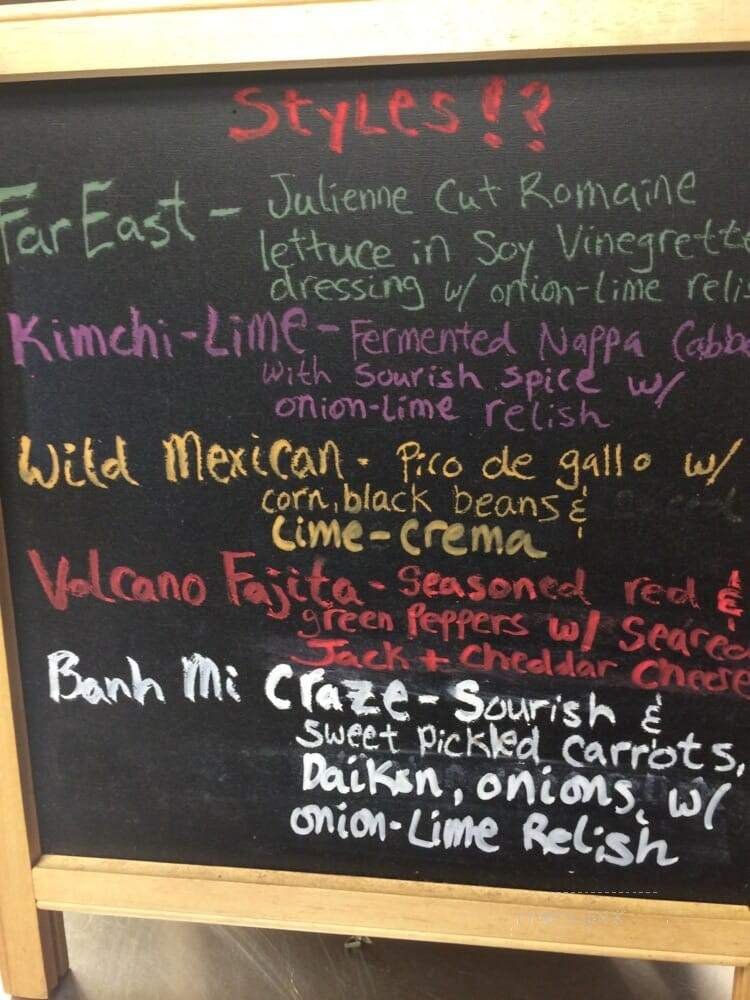 Styles!?
Far East - Julienne Cut Romaine
lettuce in Soy Vinegrette
dressing w/ onion-lime relis
Kimchi-Lime - Fermented Nappa Cabb
with Sourish spice w/
onion-lime relish
Wild Mexican - Pico de gallo w/
corn, black beans &
Lime-crema
Volcano Fajita - Seasoned red &
green Peppers w/ Seared
Jack + Cheddar Cheese
Banh Mi Craze - Sourish &
sweet pickled carrots,
Daikon, onions, w/
onion-Lime Relish